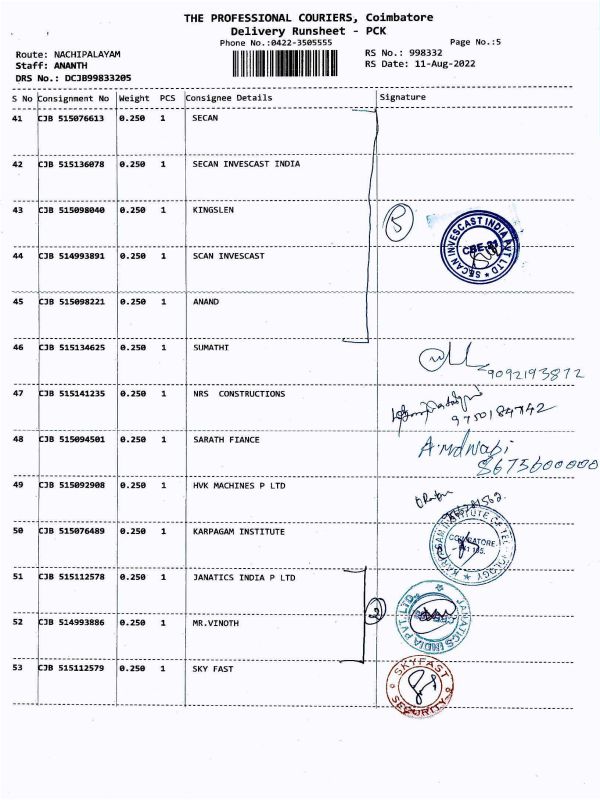 THE PROFESSIONAL COURIERS, Coimbatore
Delivery Runsheet - PCK
Phone No.:0422-3505555
Page No.:5
Route: NACHIPALAYAM
RS No.: 998332
Staff: ANANTH
RS Date: 11-Aug-2022
DRS No.: DCJB99833205
S No Consignment No Weight PCS Consignee Details Signature
41 CJB 515076613 0.250 1 SECAN
42 CJB 515136078 0.250 1 SECAN INVESCAST INDIA
43 CJB 515098040 0.250 1 KINGSLEN
5
SECAN INVESCAST INDIA PVT LTD
CBE-21
44 CJB 514993891 0.250 1 SCAN INVESCAST
45 CJB 515098221 0.250 1 ANAND
46 CJB 515134625 0.250 1 SUMATHI
9092193872
47 CJB 515141235 0.250 1 NRS CONSTRUCTIONS
9750184742
48 CJB 515094501 0.250 1 SARATH FIANCE
A.Md Nabi
8675600000
49 CJB 515092908 0.250 1 HVK MACHINES P LTD
50 CJB 515076489 0.250 1 KARPAGAM INSTITUTE
COIMBATORE
51 CJB 515112578 0.250 1 JANATICS INDIA P LTD
JANATICS INDIA PVT. LTD.
52 CJB 514993886 0.250 1 MR.VINOTH
53 CJB 515112579 0.250 1 SKY FAST
SKYFAST
SECURITY